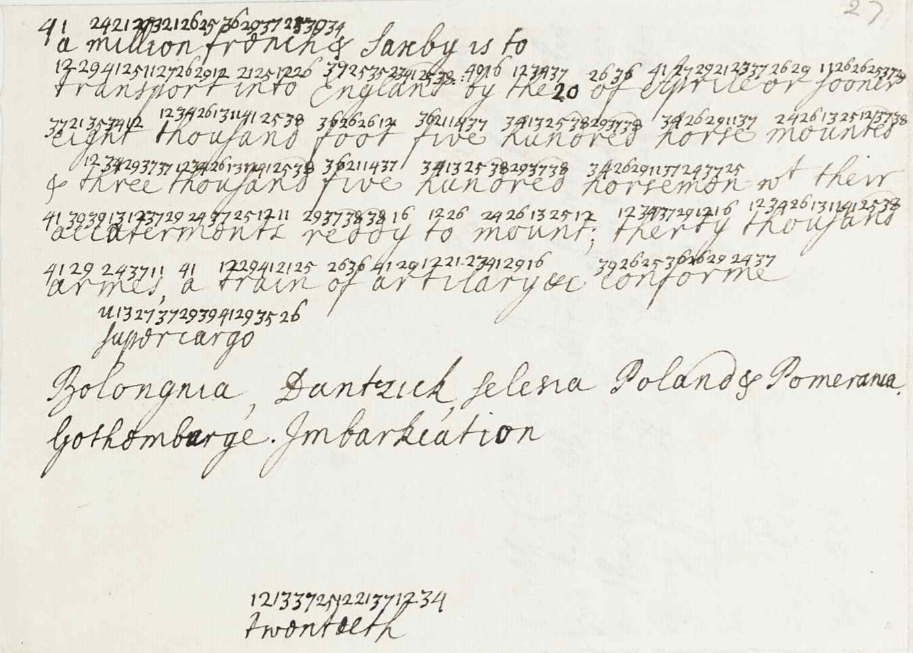 27
41 24212732126
a million french & Saxby is to
122941251127262912 21251226 39253523412538 4916 123437 2636 412729212337 2629 1126262537
transport into England by the 20 of aprile or sooner
3721353412 1234261311412538 36262612 36211437 34132538293738 3426291137 24261325123738
eight thousand foot five hundred horse mounted
1234293737 1234261311412538 36211437 34132538293738 3426291137243725
& three thousand five hundred horsemen wt their
413039131237292437251211 2937383816 1226 2426132512 123437291216 1234261311412538
accutermonts reddy to mount; therty thousand
4129243711 41 1229412125 2636 4129122123412916 39262536262924 37
armes, a train of artilary &c conforme
1113273729394129 3526
supercargo
Bolongnia, Dantzick, selesia Poland & Pomerania.
Gothemburge. Imbarkcation
1213372512 21371234
twentieth